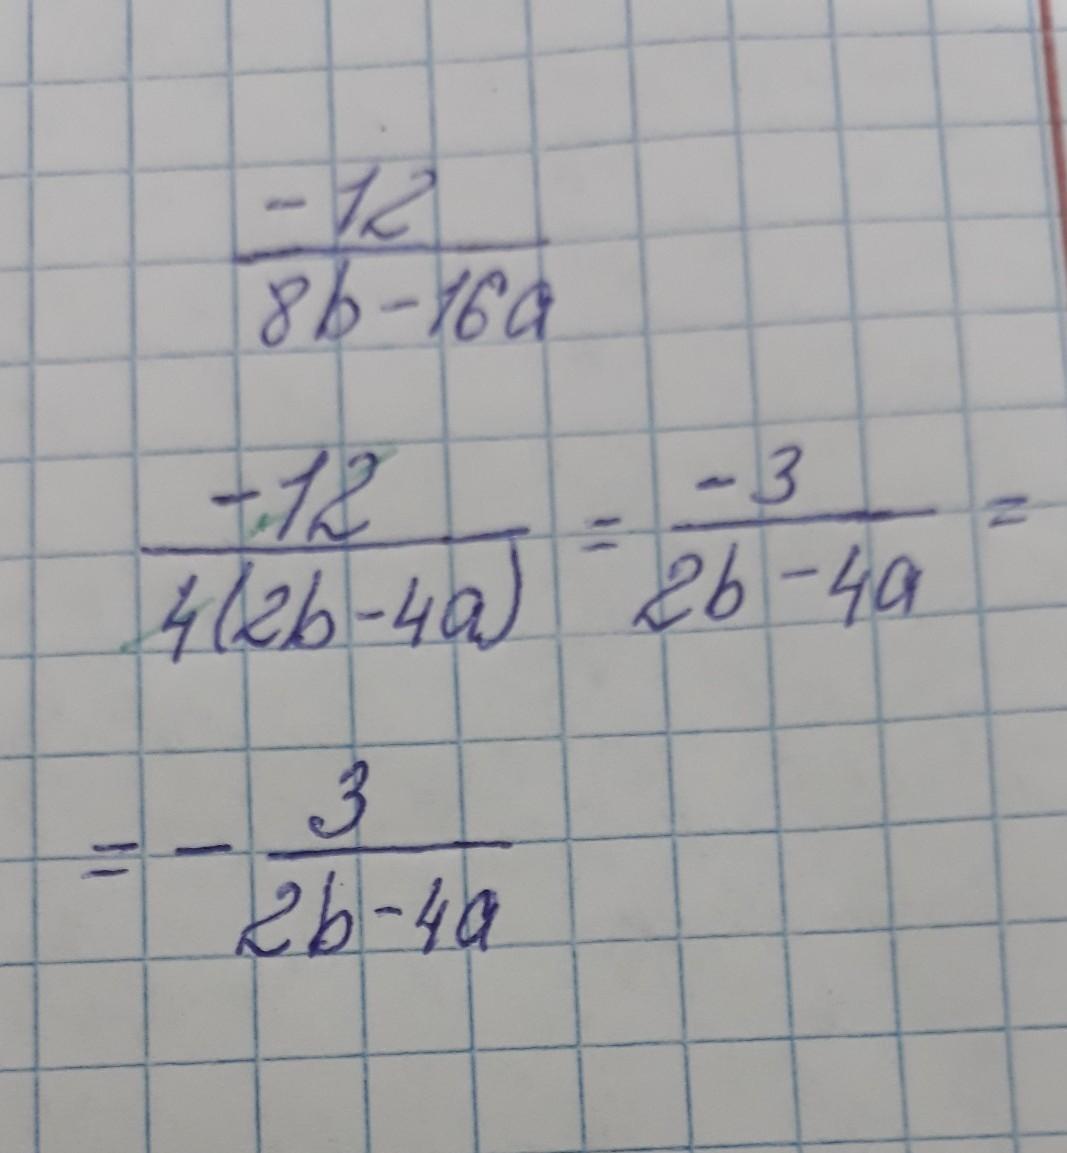 -12
8b-16a
-12 / 4(2b-4a) = -3 / 2b-4a =
= - 3 / 2b-4a